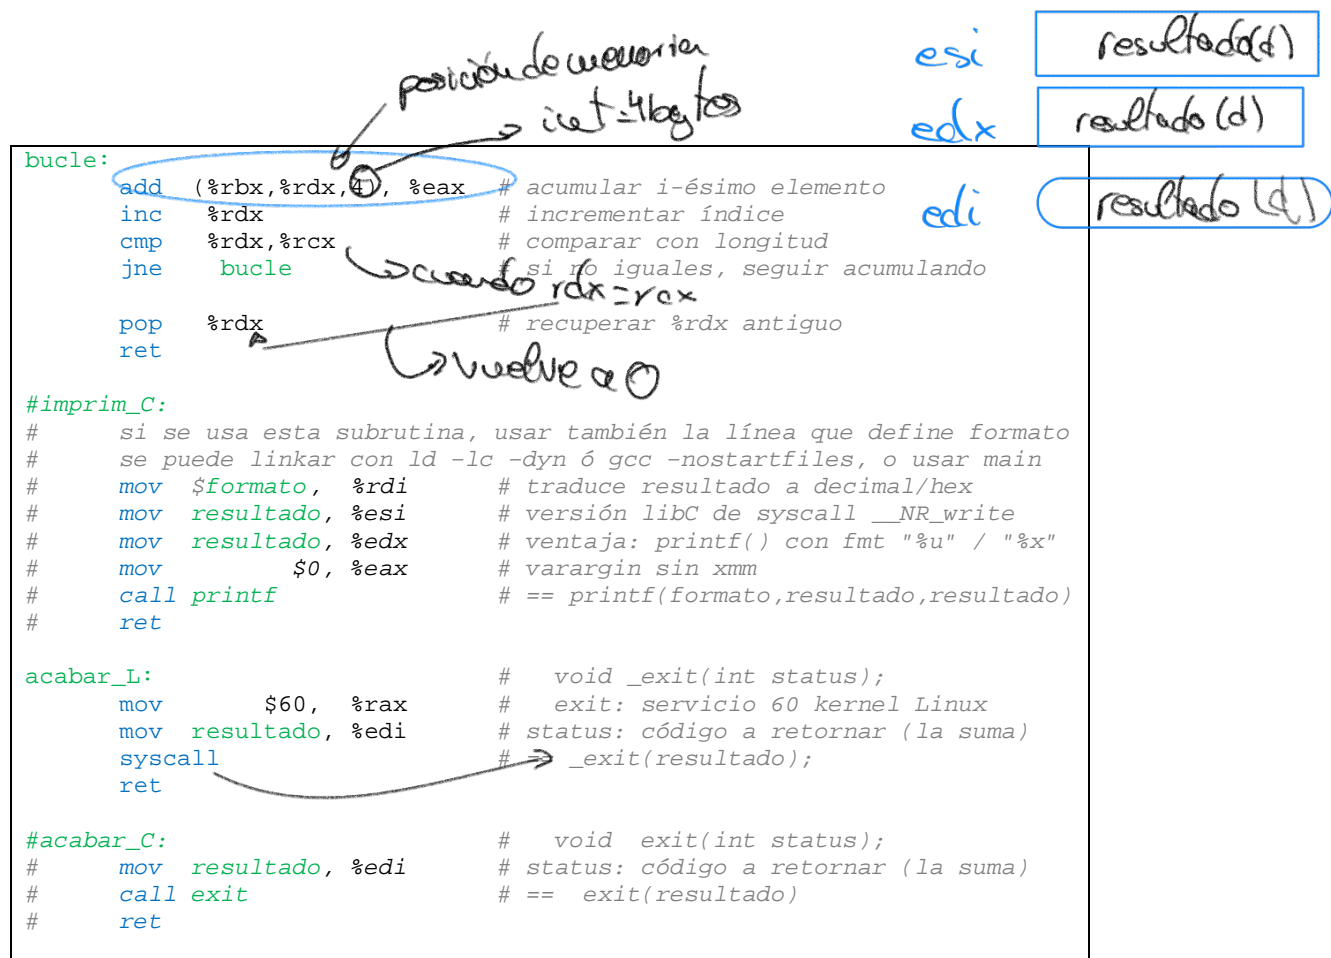 posición de memoria
int=4bytes
esi resultado(d)
edx resultado(d)
edi resultado(d)
bucle:
add (%rbx,%rdx,4), %eax # acumular i-ésimo elemento
inc %rdx # incrementar índice
cmp %rdx,%rcx # comparar con longitud
jne bucle # si no iguales, seguir acumulando
cuando rdx=rcx
pop %rdx # recuperar %rdx antiguo
ret
vuelve a 0
#imprim_C:
# si se usa esta subrutina, usar también la línea que define formato
# se puede linkar con ld -lc -dyn ó gcc -nostartfiles, o usar main
# mov $formato, %rdi # traduce resultado a decimal/hex
# mov resultado, %esi # versión libC de syscall __NR_write
# mov resultado, %edx # ventaja: printf() con fmt "%u" / "%x"
# mov $0, %eax # varargin sin xmm
# call printf # == printf(formato,resultado,resultado)
# ret
acabar_L: # void _exit(int status);
mov $60, %rax # exit: servicio 60 kernel Linux
mov resultado, %edi # status: código a retornar (la suma)
syscall # == _exit(resultado);
ret
#acabar_C: # void exit(int status);
# mov resultado, %edi # status: código a retornar (la suma)
# call exit # == exit(resultado)
# ret